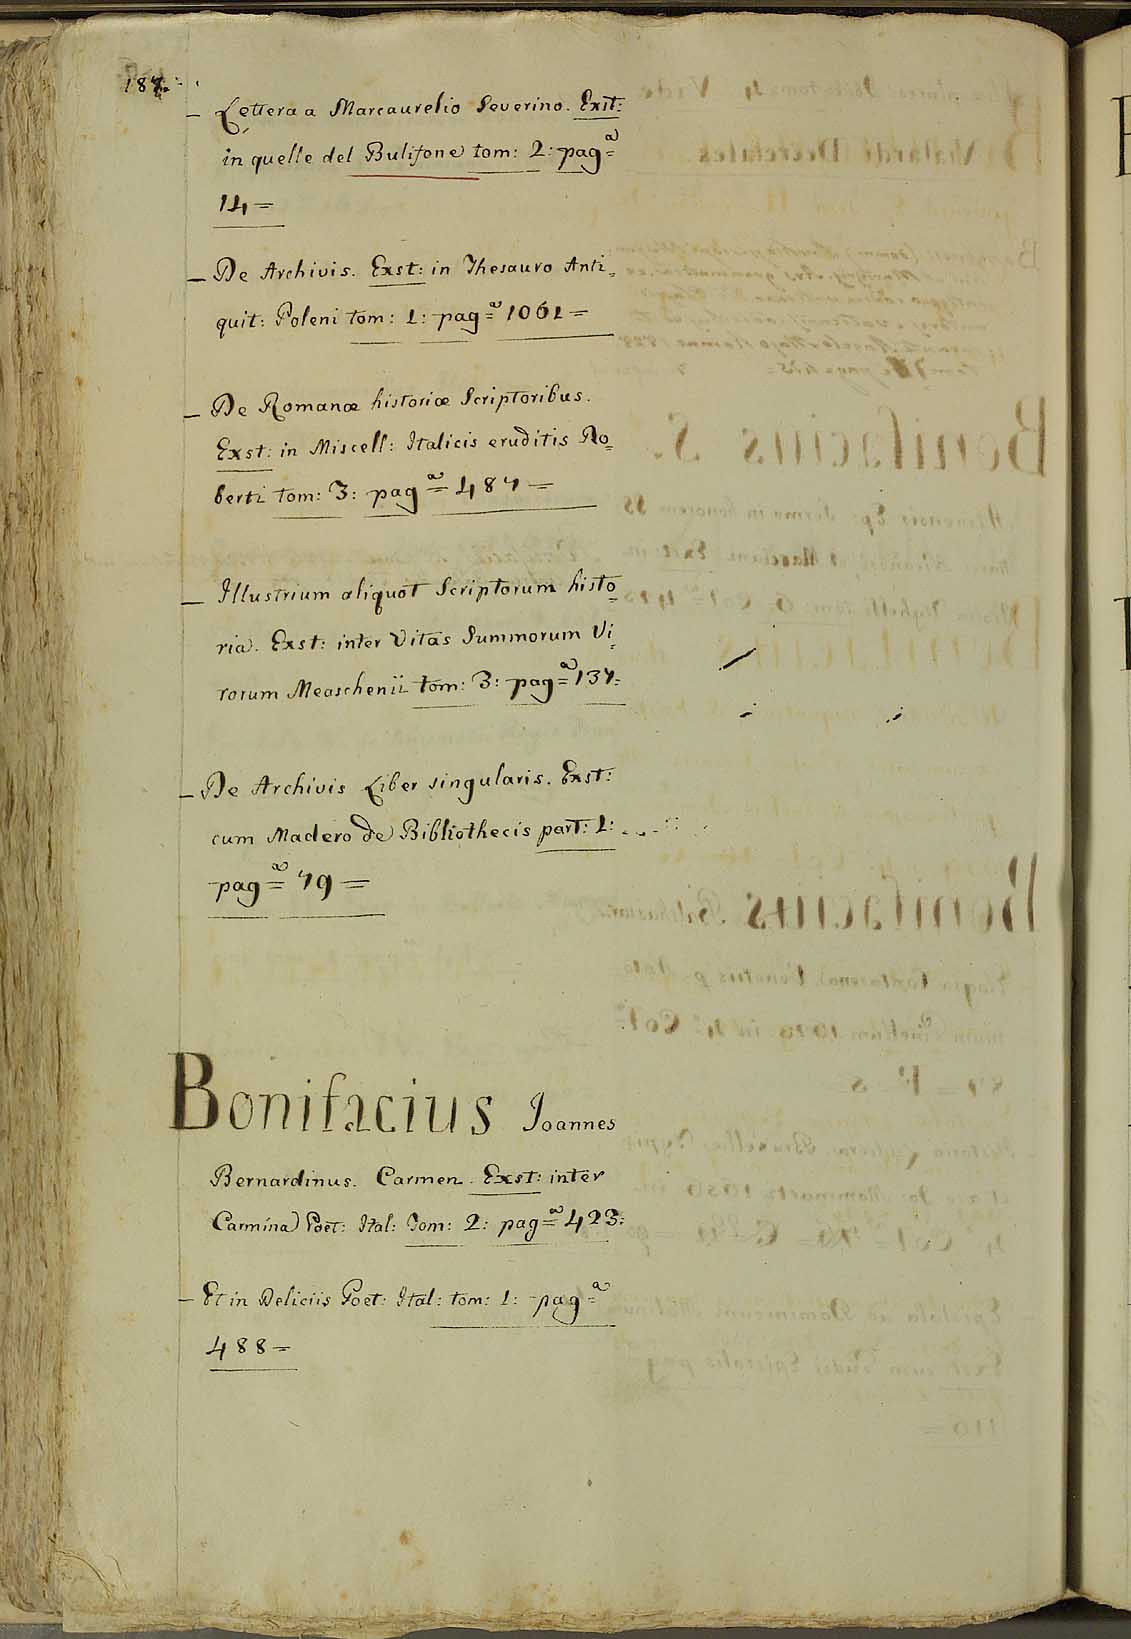 187.
– Lettera a Marcaurelio Severino. Exst:
in quelle del Bulifone tom: 2: pag=ª
14=
– De Archivis. Exst: in Thesauro Anti=
quit: Poleni tom: 1: pag=ª 1061=
– De Romanæ historiæ Scriptoribus.
Exst: in Miscell: Italicis eruditis Ro=
berti tom: 3: pag=ª 487=
– Illustrium aliquot Scriptorum histo=
ria. Exst: inter Vitas Summorum Vi=
rorum Measchenii tom: 3: pag=ª 137=
– De Archivis Liber singularis. Exst:
cum Madero de Bibliothecis part: 1:
pag=ª 79=
Bonifacius Joannes
Bernardinus. Carmen. Exst: inter
Carmina Poet: Ital: Tom: 2: pag=ª 423:
– Et in Deliciis Poet: Ital: tom: 1: pag=ª
488=